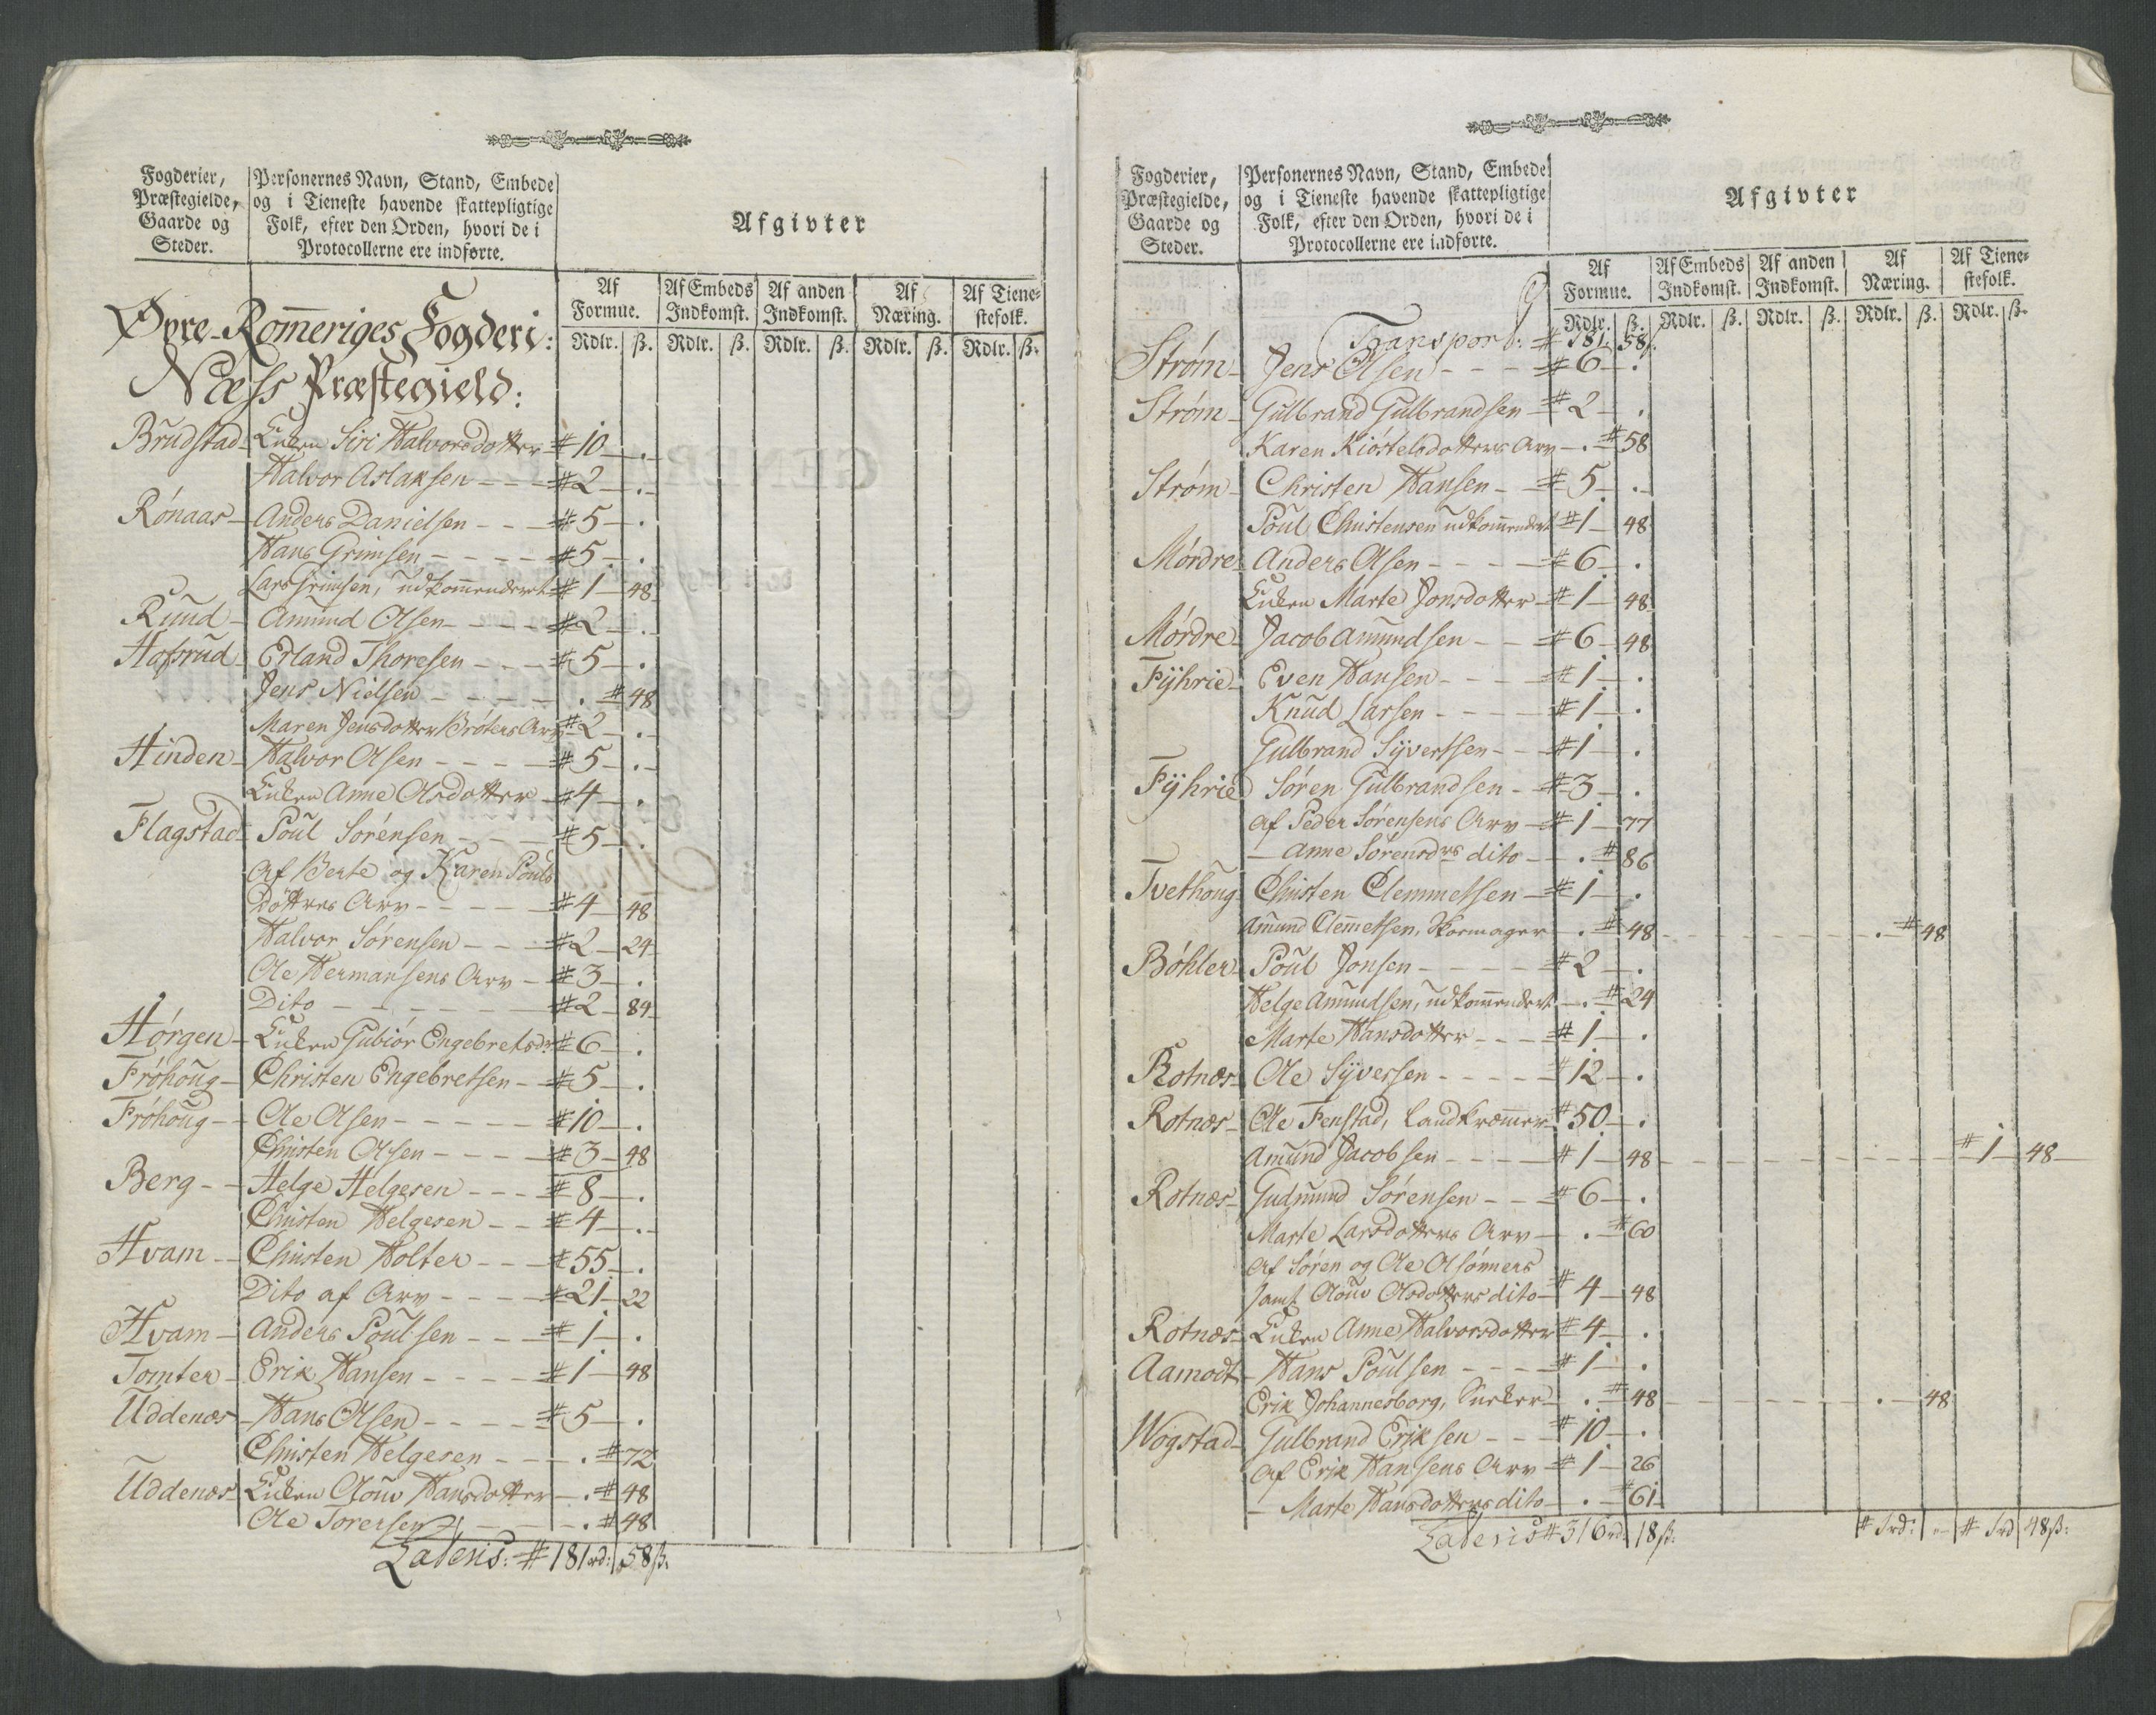 Fogderier,
Præstegielde,
Gaarde og
Steder.
Personernes Navn, Stand, Embede
og i Tieneste havende skattepligtige
Folk, efter den Orden, hvori de i
Protocollerne ere indførte.
Afgivter
Af Formue. Af Embeds Indkomst. Af anden Indkomst. Af Næring. Af Tiene- stefolk.
Rdlr. ß. Rdlr. ß. Rdlr. ß. Rdlr. ß. Rdlr. ß.
Øvre-Rom̄eriges Fogderi:
Næss Præstegield:
Brudstad - Enken Siri Halvorsdotter # 10 - .
Halvor Aslaksen - - # 2 - .
Rónaas - Anders Danielsen - - - # 5 - .
Hans Grimsen - - - - # 5 - .
Lars Grimsen, udkom̄enderet # 1 - 48
Ruud - Amund Olsen - - - - # 2 - .
Hofsrud - Erland Thoresen - - - # 5 - .
Jens Nielsen - - - - - . # 48
Maren Jensdotter Bróters Arv # 2 - .
Hinden - Halvor Olsen - - - - # 5 - .
Enken Anne Olsdotter - # 4 - .
Flagstad - Poul Sórensen - - - # 5 - .
Af Berte og Karen Pouls
Dóttres Arv - - - - - # 4 - 48
Halvor Sórensen - - - # 2 - 24
Ole Hermansens Arv - # 3 - .
Dito - - - - - - # 2 - 84
Hórgen - Enken Gubiór Engebretsdr # 6 - .
Fróhoug - Christen Engebretsen - # 5 - .
Fróhoug - - Ole Olsen - - - - - # 10 - .
Christen Olsen - - - - # 3 - 48
Berg - - Helge Helgesen - - - # 8 - .
Christen Helgesen - - # 4 - .
Hvam - - Christen Holter - - - # 55 - .
Dito af Arv - - - - # 21 - 22
Hvam - Anders Poulsen - - - # 1 - .
Tomter - Erik Hansen - - - - # 1 - 48
Uddenæs - Hans Olsen - - - - # 5 - .
Christen Helgesen - - - . # 72
Uddenæs - Enken Olouv Hansdotter - . # 48
Ole Torersen - - - . # 48
Lateris: # 181 rd: 58 ß.
Fogderier,
Præstegielde,
Gaarde og
Steder.
Personernes Navn, Stand, Embede
og i Tieneste havende skattepligtige
Folk, efter den Orden, hvori de i
Protocollerne ere indførte.
Afgivter
Af Formue. Af Embeds Indkomst. Af anden Indkomst. Af Næring. Af Tiene- stefolk.
Rdlr. ß. Rdlr. ß. Rdlr. ß. Rdlr. ß. Rdlr. ß.
Transport: # 181 58 ß.
Strøm - Jens Olsen - - - # 6 - .
Strøm - Gulbrand Gulbrandsen - # 2 - .
Karen Kióstelsdotters Arv - . # 58
Strøm - Christen Hansen - # 5 - .
Poul Christensen udkom̄enderet # 1 - 48
Mórdre - Anders Olsen - - - - # 6 - .
Enken Marte Jonsdotter - # 1 - 48
Mórdre - Jacob Amundsen - - # 6 - 48
Fÿhrie - Even Hansen - - - - # 1 - .
Knud Larsen - - - - # 1 - .
Gulbrand Sÿvertsen - - # 1 - .
Fÿhrie Søren Gulbrandsen - # 3 - .
Af Peder Sórensens Arv - # 1 - 77
- Anne Sórensdrs dito - - . # 86
Tvethoug - Christen Clemmetsen - # 1 - .
Amund Clem̄etsen, Skomager - . # 48 - - - . # 48
Bóhler - Poul Jonsen - - - - # 2 - .
Helge Amundsen, udkom̄enderet - . # 24
Marte Hansdotter - - - # 1 - .
Rotnæs - Ole Sÿversen - - - - # 12 - .
Rotnæs - Ole Fenstad, Landkræm̄er # 50 - .
Amund Jacobsen - - - - # 1 - 48 - - - # 1 - 48
Rotnæs - Gudmund Sórensen - - # 6 - .
Marte Larsdotters Arv - . # 60
Af Søren og Ole Olsónners
samt Olouv Olsdotters dito - # 4 - 48
Rotnæs - Enken Anne Halvorsdotter # 4 - .
Aamodt - Hans Poulsen - - - - # 1 - .
Erik Johannesborg, - . # 48 - - - . - 48
Wogstad - Gulbrand Eriksen - - # 10 - .
Af Erik Hansens Arv - # 1 - 26
- Marte Hansdotters dito - . - # 61
Lateris # 316 rd: 18 ß: # 1 rd: „ - # 1 rd 48 ß: